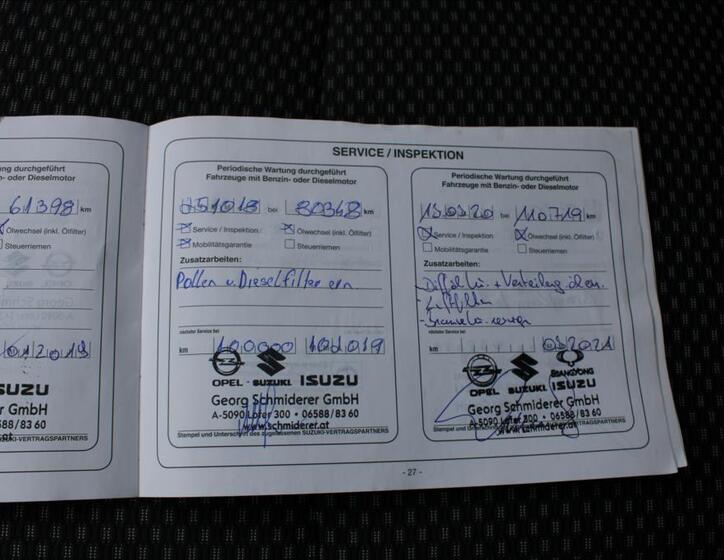 ng durchgeführt
n- oder Dieselmotor
61398 km
Ölwechsel (inkl. Ölfilter)
Steuerriemen
012019
SUZU
GmbH
588/83 60
.at
-VERTRAGSPARTNERS
SERVICE / INSPEKTION
Periodische Wartung durchgeführt
Fahrzeuge mit Benzin- oder Dieselmotor
251018 bei 80348 km
Service / Inspektion
Ölwechsel (inkl. Ölfilter)
Mobilitätsgarantie
Steuerriemen
Zusatzarbeiten:
Pollen u. Dieselfilter ern
nächster Service bei
km 100000 102019
OPEL - SUZUKI ISUZU
Georg Schmiderer GmbH
A-5090 Lofer 300 • 06588/83 60
www.schmiderer.at
Stempel und Unterschrift des zugelassenen SUZUKI-VERTRAGSPARTNERS
Periodische Wartung durchgeführt
Fahrzeuge mit Benzin- oder Dieselmotor
13.03.20 bei 110719 km
Service / Inspektion
Ölwechsel (inkl. Ölfilter)
Mobilitätsgarantie
Steuerriemen
Zusatzarbeiten:
- Luftfilter
nächster Service bei
km 032021
OPEL SUZUKI SSANGYONG
ISUZU
Georg Schmiderer GmbH
A-5090 Lofer 300 • 06588/83 60
www.schmiderer.at
Stempel und Unterschrift des zugelassenen SUZUKI-VERTRAGSPARTNERS
- 27 -